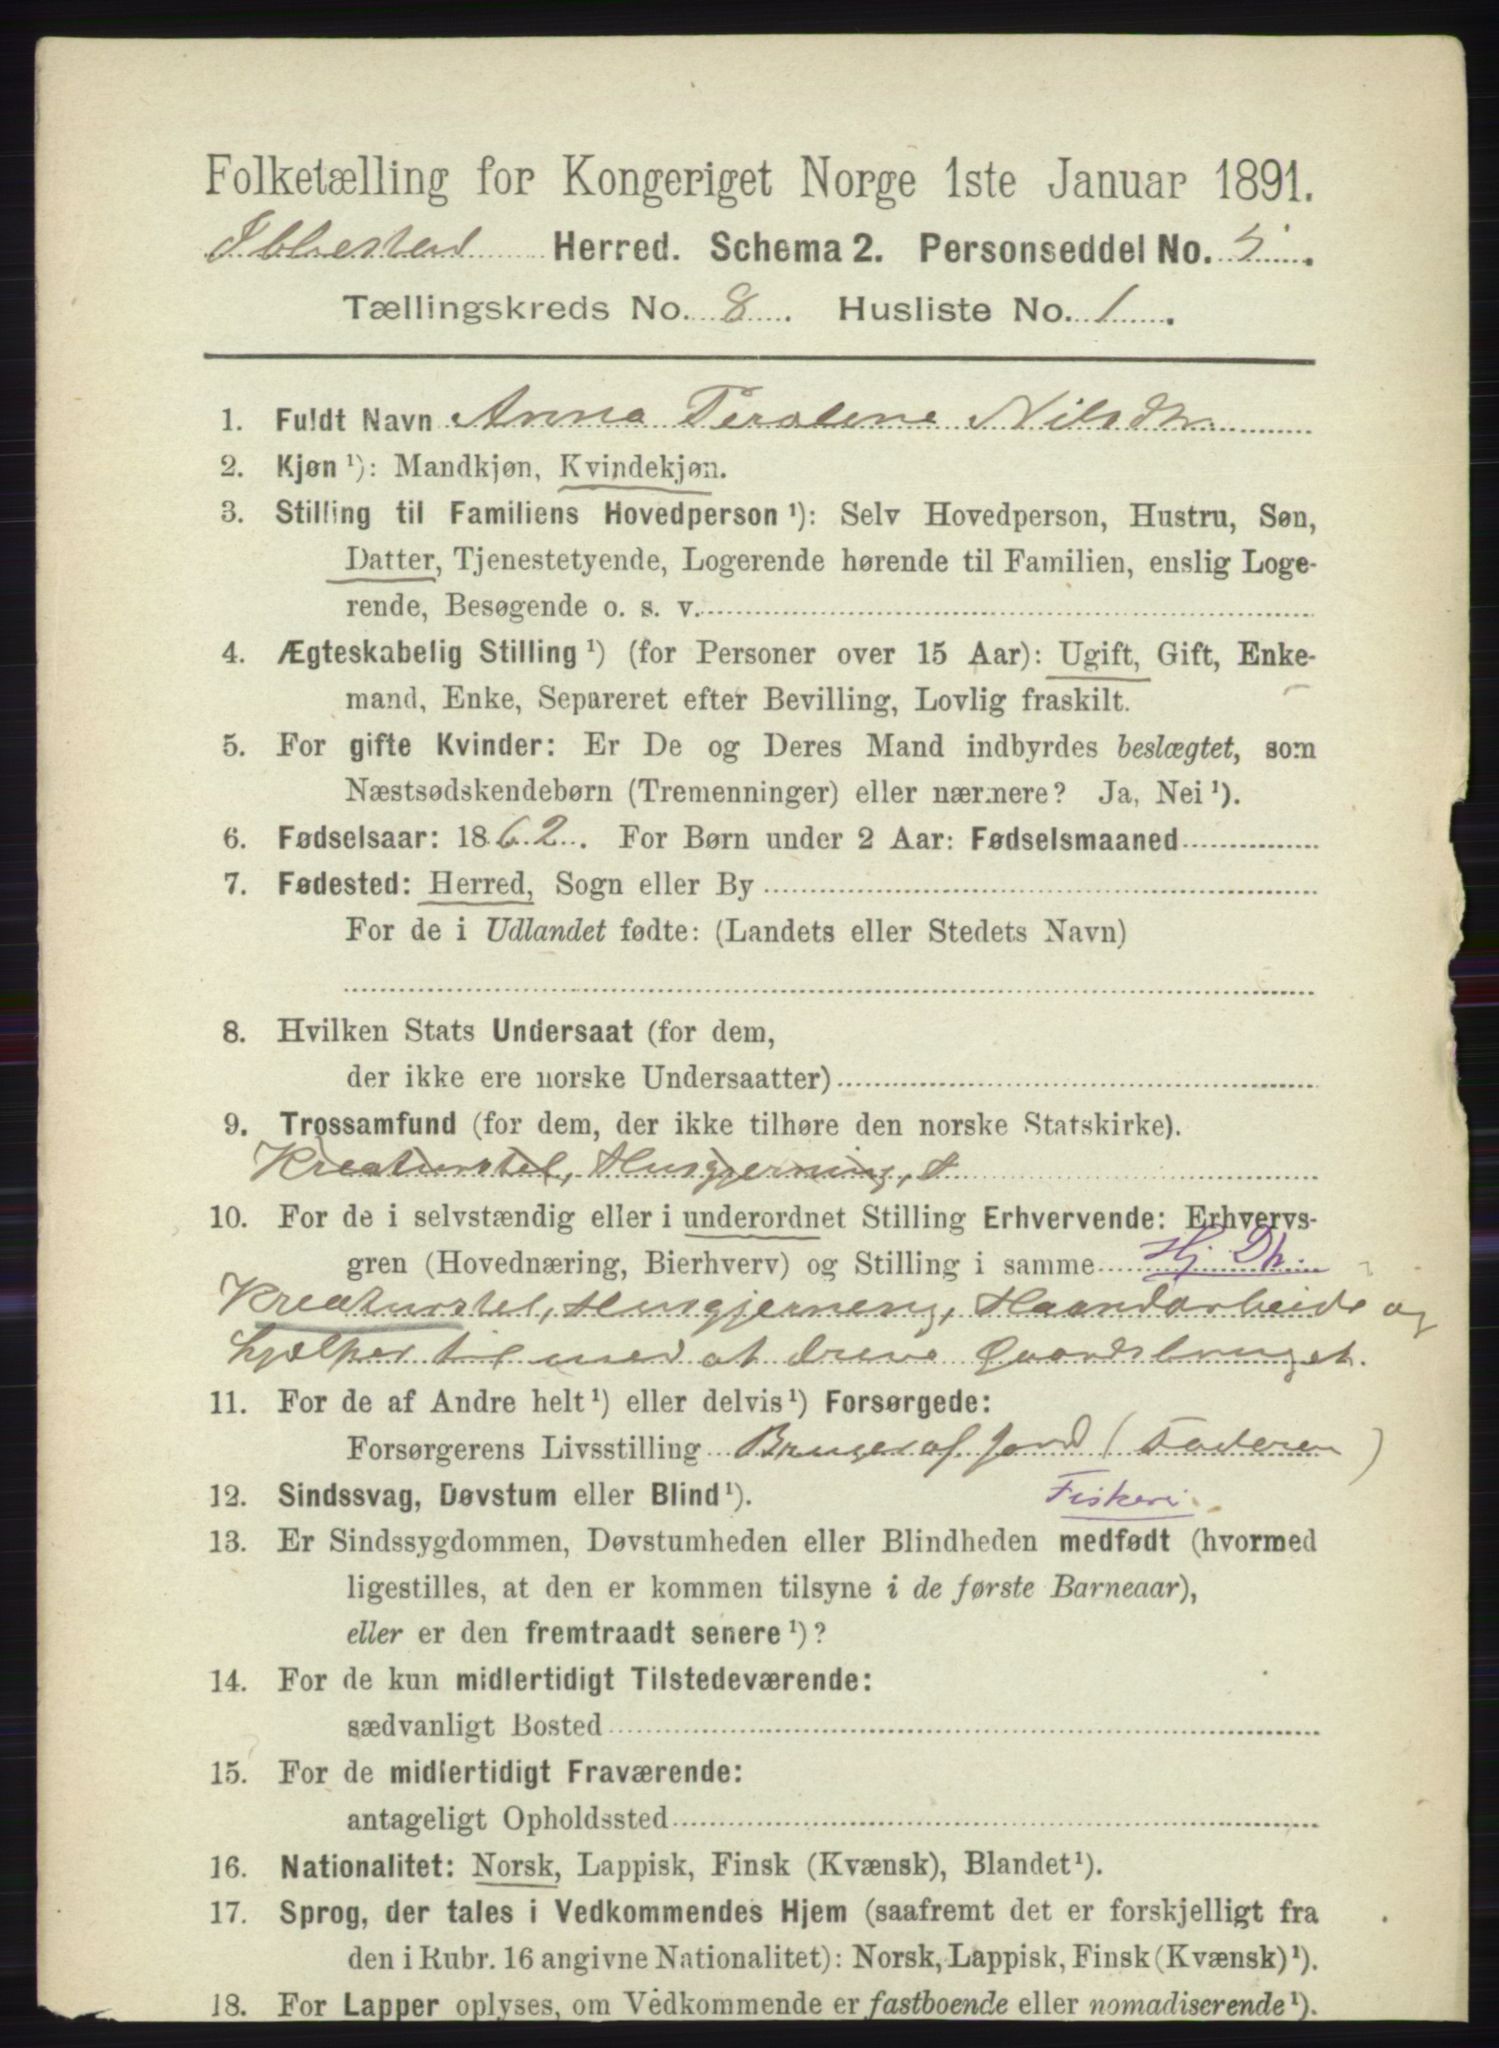 Folketælling for Kongeriget Norge 1ste Januar 1891.
Ibbestad Herred. Schema 2. Personseddel No. 5.
Tællingskreds No. 8. Husliste No. 1.
1. Fuldt Navn Anna Peroline Nilsdtr
2. Kjøn ¹): Mandkjøn, Kvindekjøn.
3. Stilling til Familiens Hovedperson ¹): Selv Hovedperson, Hustru, Søn,
Datter, Tjenestetyende, Logerende hørende til Familien, enslig Loge-
rende, Besøgende o. s. v.
4. Ægteskabelig Stilling ¹) (for Personer over 15 Aar): Ugift, Gift, Enke-
mand, Enke, Separeret efter Bevilling, Lovlig fraskilt.
5. For gifte Kvinder: Er De og Deres Mand indbyrdes beslægtet, som
Næstsødskendebørn (Tremenninger) eller nærmere? Ja, Nei ¹).
6. Fødselsaar: 1862. For Børn under 2 Aar: Fødselsmaaned
7. Fødested: Herred, Sogn eller By
For de i Udlandet fødte: (Landets eller Stedets Navn)
8. Hvilken Stats Undersaat (for dem,
der ikke ere norske Undersaatter)
9. Trossamfund (for dem, der ikke tilhøre den norske Statskirke).
Kreaturstel, Husgjerning,
10. For de i selvstændig eller i underordnet Stilling Erhvervende: Erhvervs-
gren (Hovednæring, Bierhverv) og Stilling i samme Hj. Dtr.
Kreaturstel, Husgjerning, Haandarbeide og
hjælper til med at drive Gaardsbruget.
11. For de af Andre helt ¹) eller delvis ¹) Forsørgede:
Forsørgerens Livsstilling Bruger af jord (Faderen)
12. Sindssvag, Døvstum eller Blind ¹). Fiskeri
13. Er Sindssygdommen, Døvstumheden eller Blindheden medfødt (hvormed
ligestilles, at den er kommen tilsyne i de første Barneaar),
eller er den fremtraadt senere ¹)?
14. For de kun midlertidigt Tilstedeværende:
sædvanligt Bosted
15. For de midlertidigt Fraværende:
antageligt Opholdssted
16. Nationalitet: Norsk, Lappisk, Finsk (Kvænsk), Blandet ¹).
17. Sprog, der tales i Vedkommendes Hjem (saafremt det er forskjelligt fra
den i Rubr. 16 angivne Nationalitet): Norsk, Lappisk, Finsk (Kvænsk) ¹).
18. For Lapper oplyses, om Vedkommende er fastboende eller nomadiserende ¹).